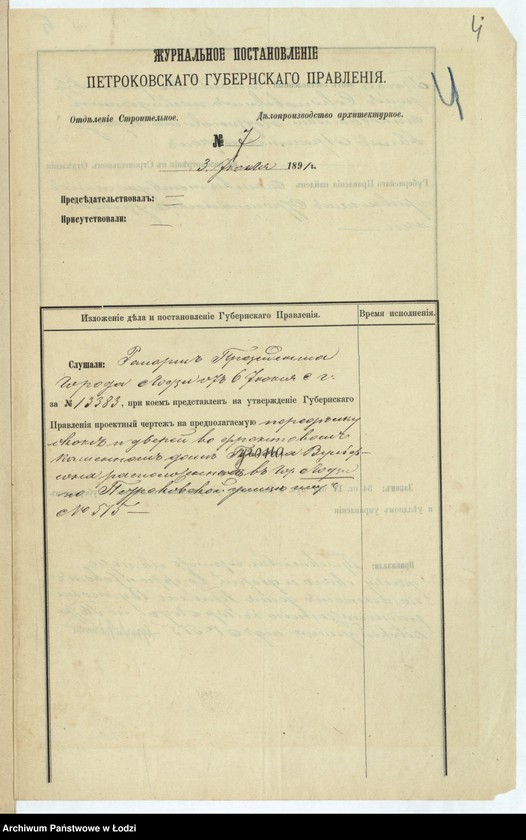 4
ЖУРНАЛЬНОЕ ПОСТАНОВЛЕНІЕ
ПЕТРОКОВСКАГО ГУБЕРНСКАГО ПРАВЛЕНІЯ.
Отдѣленіе Строительное. Дѣлопроизводство архитектурное.
№ 7
3 Іюля 1891 г.
Предсѣдательствовалъ: —
Присутствовали: —
Изложеніе дѣла и постановленіе Губернскаго Правленія. Время исполненія.
Слушали: Рапортъ Президента
Города Лодзи отъ 6 Іюня с г.
за № 13383, при коемъ представленъ на утвержденіе Губернскаго
Правленія проектный чертежъ на предполагаемую передѣлку
оконъ и дверей во фронтовомъ
каменномъ домѣ
въ гор. Лодзи
по Петроковской улицѣ подъ
№ 515 —
Archiwum Państwowe w Łodzi